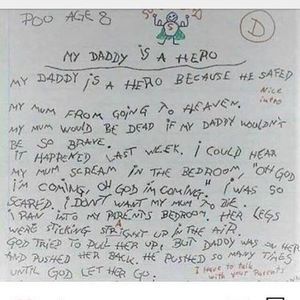 POO AGE 8
D
MY DADDY IS A HERO
MY DADDY IS A HERO BECAUSE HE SAFED
Nice intro
MY MUM FROM GOING TO HEAVEN.
MY MUM WOULD BE DEAD IF MY DADDY WOULDN'T
BE SO BRAVE.
IT HAPPENED LAST WEEK. I COULD HEAR
MY MUM SCREAM IN THE BEDROOM, "OH GOD
I'M COMING, OH GOD I'M COMING." I WAS SO
SCARED. I DON'T WANT MY MUM TO DIE.
I RAN INTO MY PARENTS BEDROOM. HER LEGS
WERE STICKING STRIGHT UP IN THE AIR.
GOD TRIED TO PULL HER UP. BUT DADDY WAS ON HER
AND PUSHED HER BACK. HE PUSHED SO MANY TIMES
UNTIL GOD LET HER GO.
I have to talk with your parents